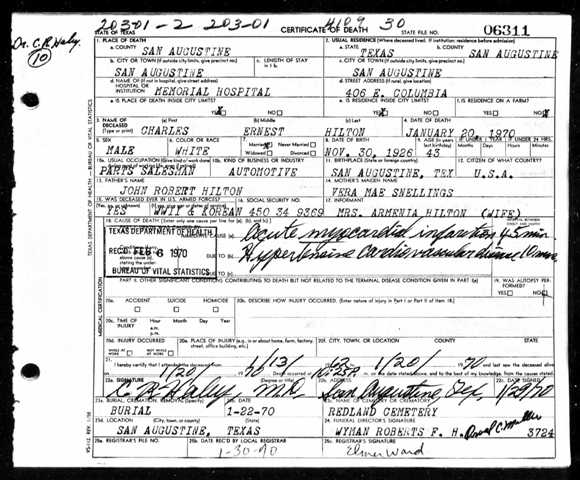 20301-2 203-01 4109 30
STATE OF TEXAS CERTIFICATE OF DEATH STATE FILE NO. 06311
Dr. C. R. Haley.
10
1. PLACE OF DEATH 2. USUAL RESIDENCE (Where deceased lived. If institution: residence before admission)
a. COUNTY SAN AUGUSTINE a. STATE TEXAS b. COUNTY SAN AUGUSTINE
b. CITY OR TOWN (If outside city limits, give precinct no.) c. LENGTH OF STAY c. CITY OR TOWN (If outside city limits, give precinct no.)
SAN AUGUSTINE SAN AUGUSTINE
d. NAME OF (If not in hospital, give street address) HOSPITAL OR INSTITUTION MEMORIAL HOSPITAL d. STREET ADDRESS 406 E. COLUMBIA
e. IS PLACE OF DEATH INSIDE CITY LIMITS? e. IS RESIDENCE INSIDE CITY LIMITS? f. IS RESIDENCE ON A FARM?
YES NO YES NO YES NO
3. NAME OF DECEASED (Type or print) (a) First (b) Middle (c) Last 4. DATE OF DEATH
CHARLES ERNEST HILTON JANUARY 20, 1970
5. SEX 6. COLOR OR RACE 7. Married Never Married Widowed Divorced 8. DATE OF BIRTH
MALE WHITE NOV. 30, 1926 43
10a. USUAL OCCUPATION 10b. KIND OF BUSINESS OR INDUSTRY 11. BIRTHPLACE (State or foreign country) 12. CITIZEN OF WHAT COUNTRY?
PARTS SALESMAN AUTOMOTIVE SAN AUGUSTINE, TEX U.S.A.
13. FATHER'S NAME 14. MOTHER'S MAIDEN NAME
JOHN ROBERT HILTON VERA MAE SNELLINGS
15. WAS DECEASED EVER IN U.S. ARMED FORCES? 16. SOCIAL SECURITY NO. 17. INFORMANT
YES WWII & KOREAN 450 34 9369 MRS. ARMENIA HILTON (WIFE)
18. CAUSE OF DEATH
TEXAS DEPARTMENT OF HEALTH
REC'D FEB 6 1970
BUREAU OF VITAL STATISTICS
Acute myocardial infarction 45 min.
Hypertensive Cardiovascular disease
PART II. OTHER SIGNIFICANT CONDITIONS CONTRIBUTING TO DEATH BUT NOT RELATED TO THE TERMINAL DISEASE CONDITION GIVEN IN PART I(a) 19. WAS AUTOPSY PERFORMED?
YES NO
20a. ACCIDENT SUICIDE HOMICIDE 20b. DESCRIBE HOW INJURY OCCURRED. (Enter nature of injury in Part I or Part II of item 18.)
20c. TIME OF INJURY Hour Month Day Year
a.m.
p.m.
20d. INJURY OCCURRED 20e. PLACE OF INJURY (e.g., in or about home, farm, factory, street, office building, etc.) 20f. CITY, TOWN, OR LOCATION COUNTY STATE
WHILE AT WORK NOT WHILE AT WORK
21. I hereby certify that I attended the deceased from 1/13/ 62 1/20/ 70
1/20 70 10:25P
22a. SIGNATURE 22b. ADDRESS 22c. DATE SIGNED
C. R. Haley M.D. San Augustine, Tex. 1/29/70
23a. BURIAL, CREMATION, REMOVAL (Specify) 23b. DATE 23c. NAME OF CEMETERY OR CREMATORY
BURIAL 1-22-70 REDLAND CEMETERY
23d. LOCATION (City, town, or county) (State) 24. FUNERAL DIRECTOR'S SIGNATURE
SAN AUGUSTINE, TEXAS WYMAN ROBERTS F. H. 3724
25a. REGISTRAR'S FILE NO. 25b. DATE REC'D BY LOCAL REGISTRAR 25c. REGISTRAR'S SIGNATURE
1-30-70 Elmer Ward
TEXAS DEPARTMENT OF HEALTH — BUREAU OF VITAL STATISTICS
MEDICAL CERTIFICATION